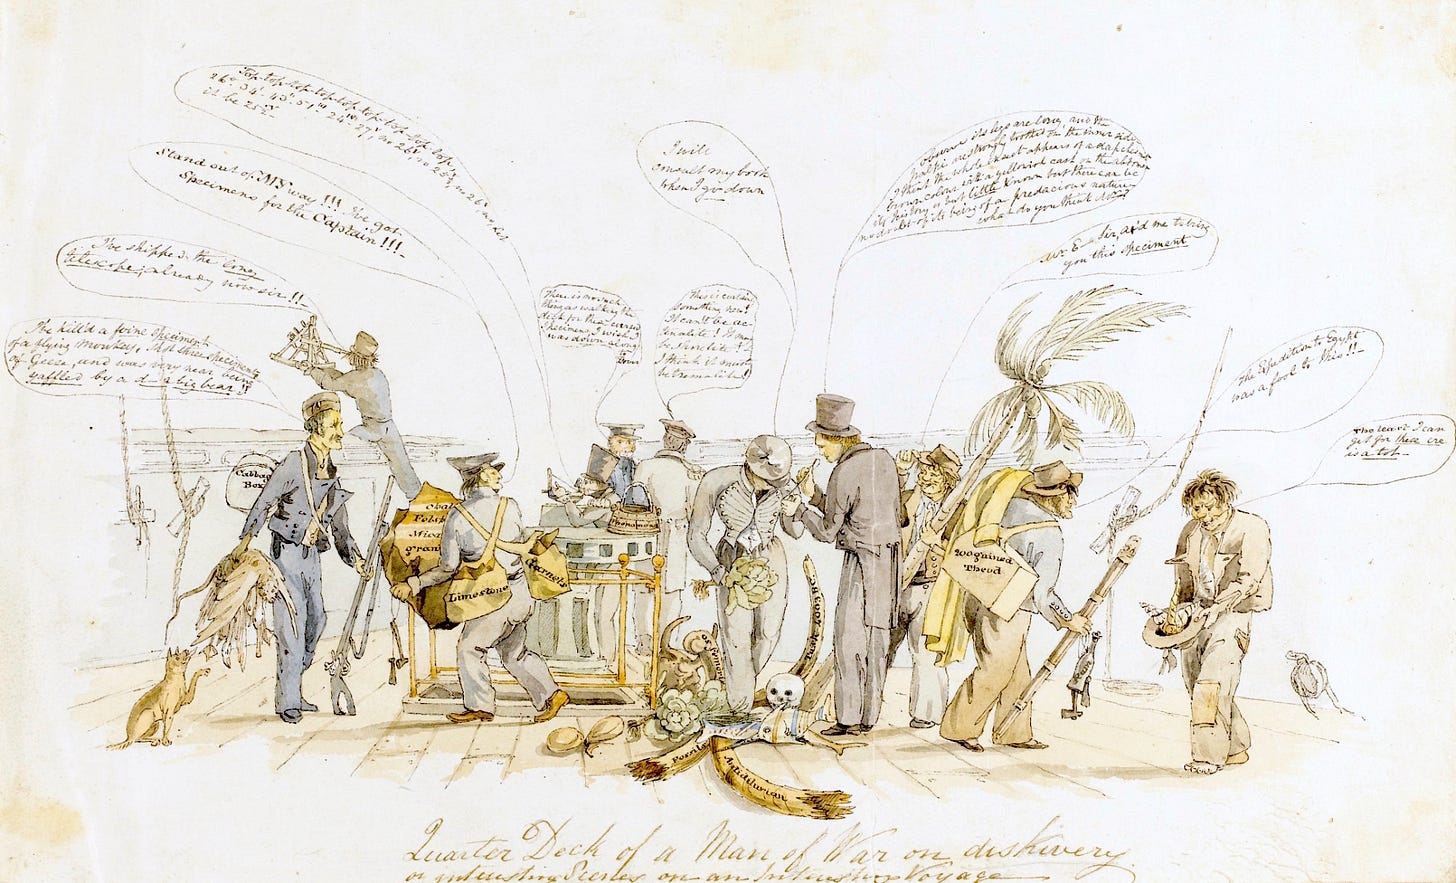 Top-top-top-top-top-top-top-top-top
26° 34' 43" 51''' 24'''' 27' no 26' no 25½ no 26 no let
it be 25½.
Stand out of MY way!!! I've got
Specimens for the Captain!!!
I've shipped the long
telescope; already now sir!!
I've kill'd a foine speciment
of a flying monkey, shot three speciments
of Geese, and was very near being
gaffled by a d— a big bear!!
There is no such
thing as walking the
deck for these cursed
specimens, I wish I
was down along
Down
This is certainly
something new?
It can't be ac-
tinolite! It may
be Hornblite!
I think it must
be tremolite!
I will
consult my book
when I go down
observe its legs are long, and the
palpi are strongly toothed on the inner side
I think the whole insect appears of a dark chesnut
brown colour with a yellowish cast on the abdomen
its history is but little known but there can be
no doubt of its being of a predacious nature
what do you think
Mr E— Sir, ax'd me to bring
you this speciment
The Expedition to Egypt
was a fool to this!!—
The least I can
get for these ere
is a tot—
Cabbage
Box
Coal
Felspar
Mica
gran
Limestone
Garnets
Chronometer
Wogained
Theod
Fossils
Antidiluvian
Quarter Deck of a Man of War on diskivery
or interesting Scenes on an Interesting Voyage